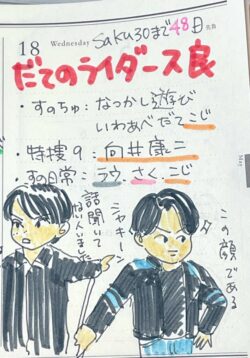 saku30まで48日
18 Wednesday 先負
だてのライダース良
・すのちゅ:なつかし遊び
いわあべだてこじ
・特捜9:向井康二
・すの日常:ラウ.さく.こじ
話聞いて
ニャキーン
この顔である
May